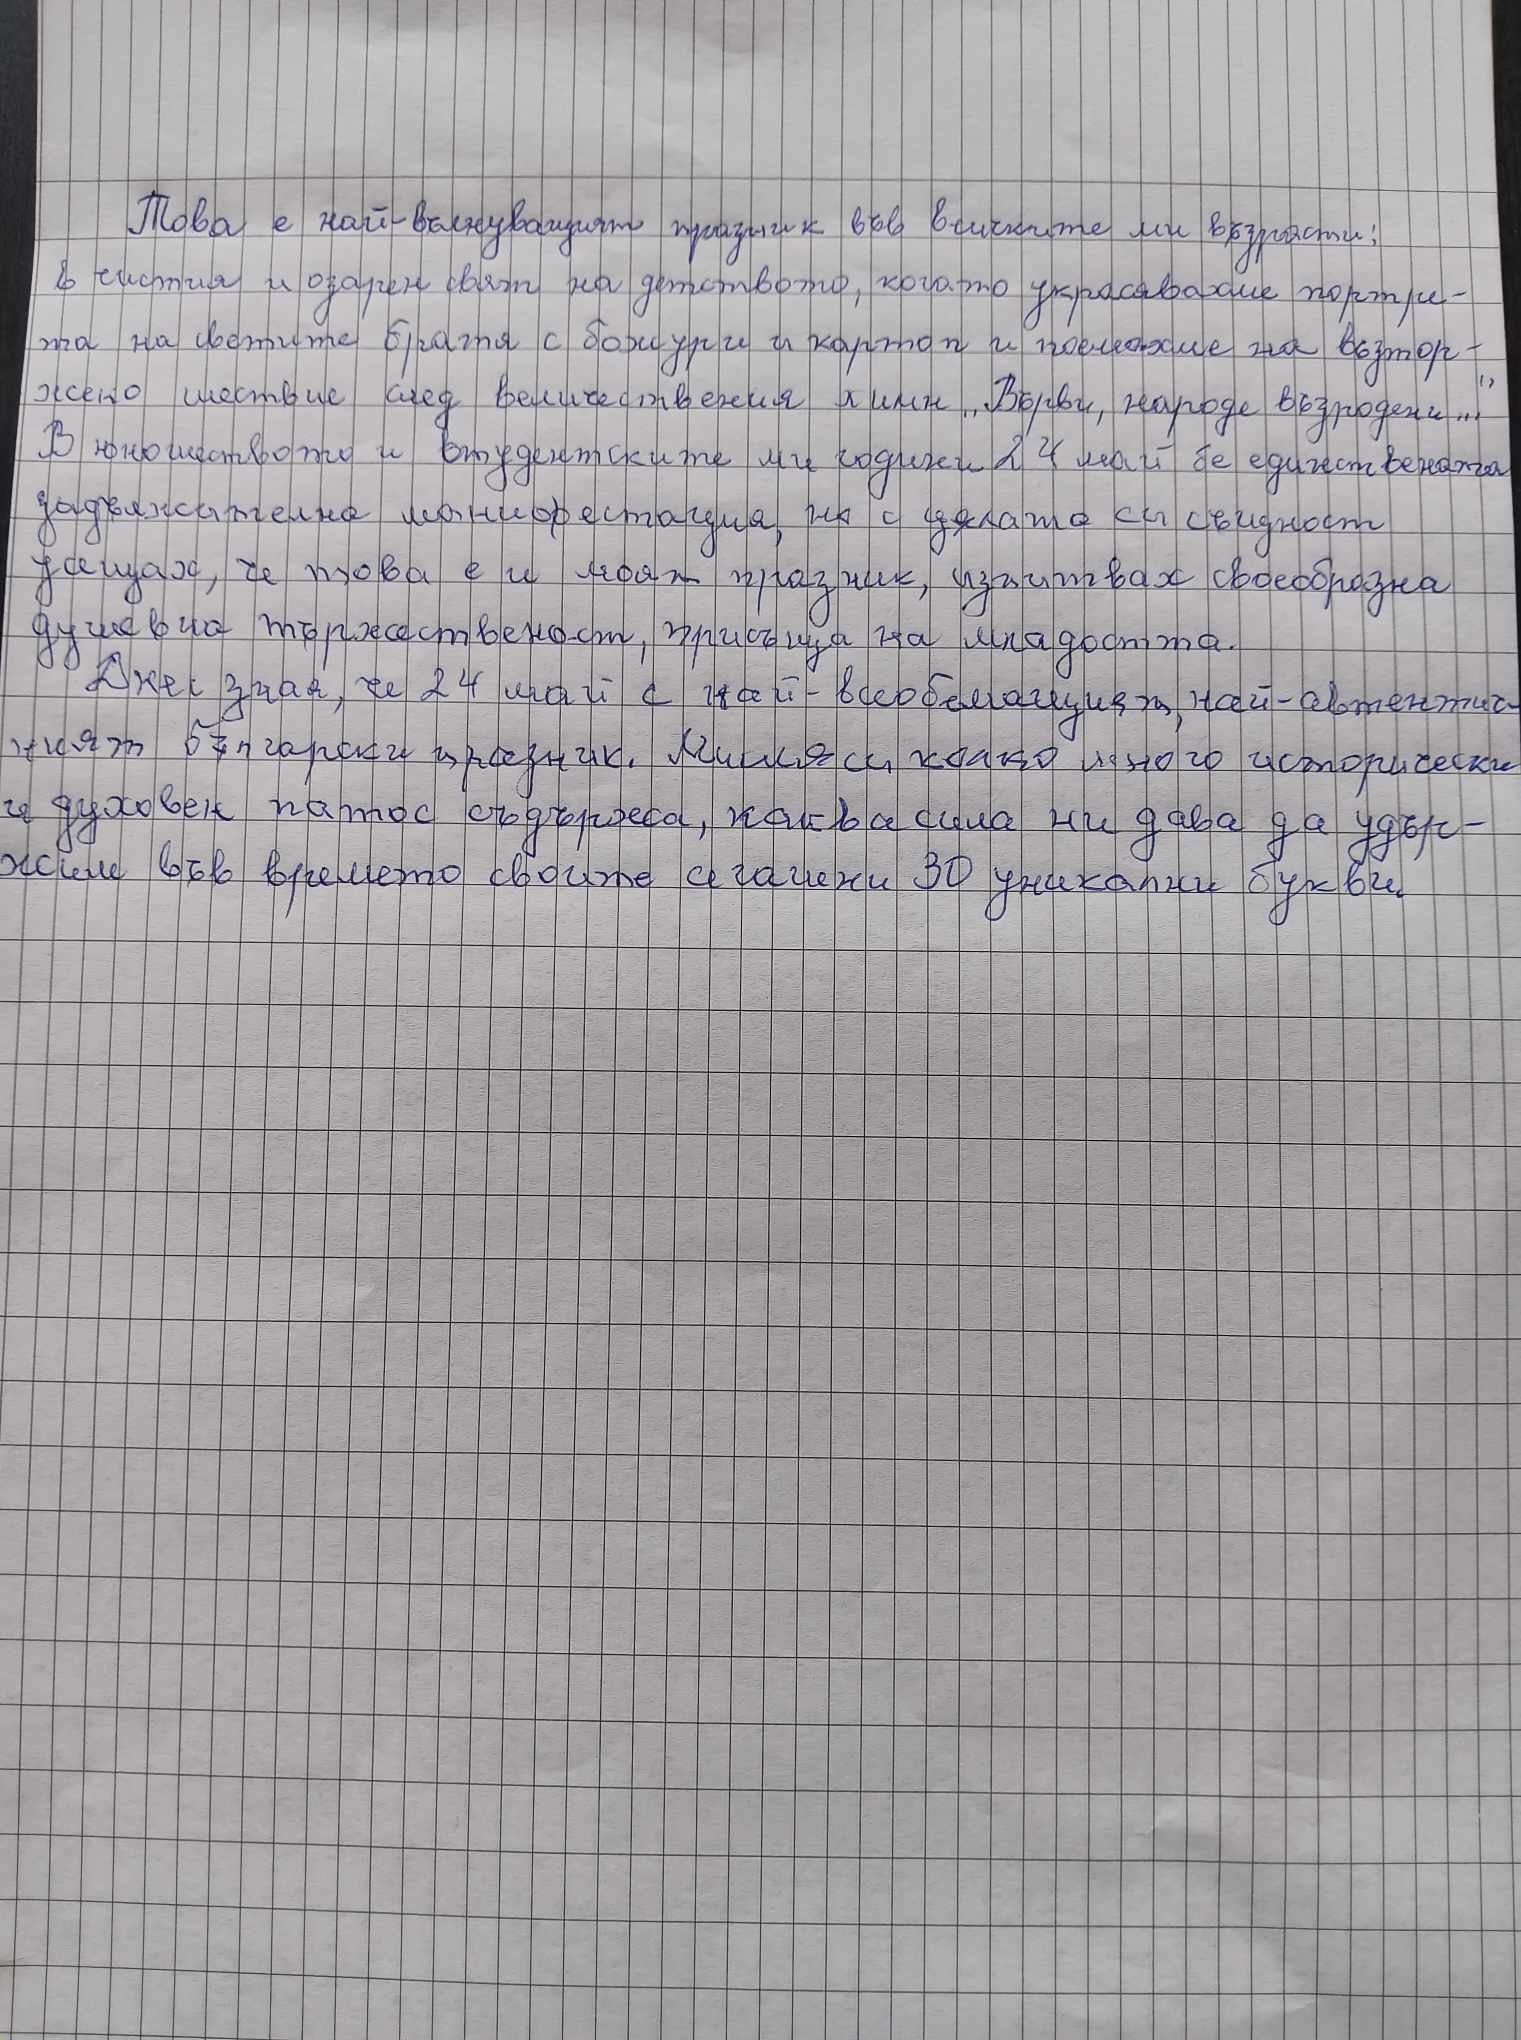 Това е най-вълнуващият празник във всичките ми възрасти:
в чистия и озарен свят на детството, когато украсявахме портре-
та на светите братя с божури и картоп и поемахме на възтор-
жено шествие след величествения химн „Върви, народе възродени..."
В юношеството и студентските ми години 24 май бе единствената
задължителна манифестация, но с цялата си същност
усещах, че това е и моят празник, изпитвах своеобразна
душевна тържественост, присъща на младостта.
Днес зная, че 24 май е най-всеобемащият, най-автентич-
ният български празник. Мисля си колко много исторически
и духовен патос съдържа, каква сила ни дава да удър-
жиме във времето своите сегашни 30 уникални букви.